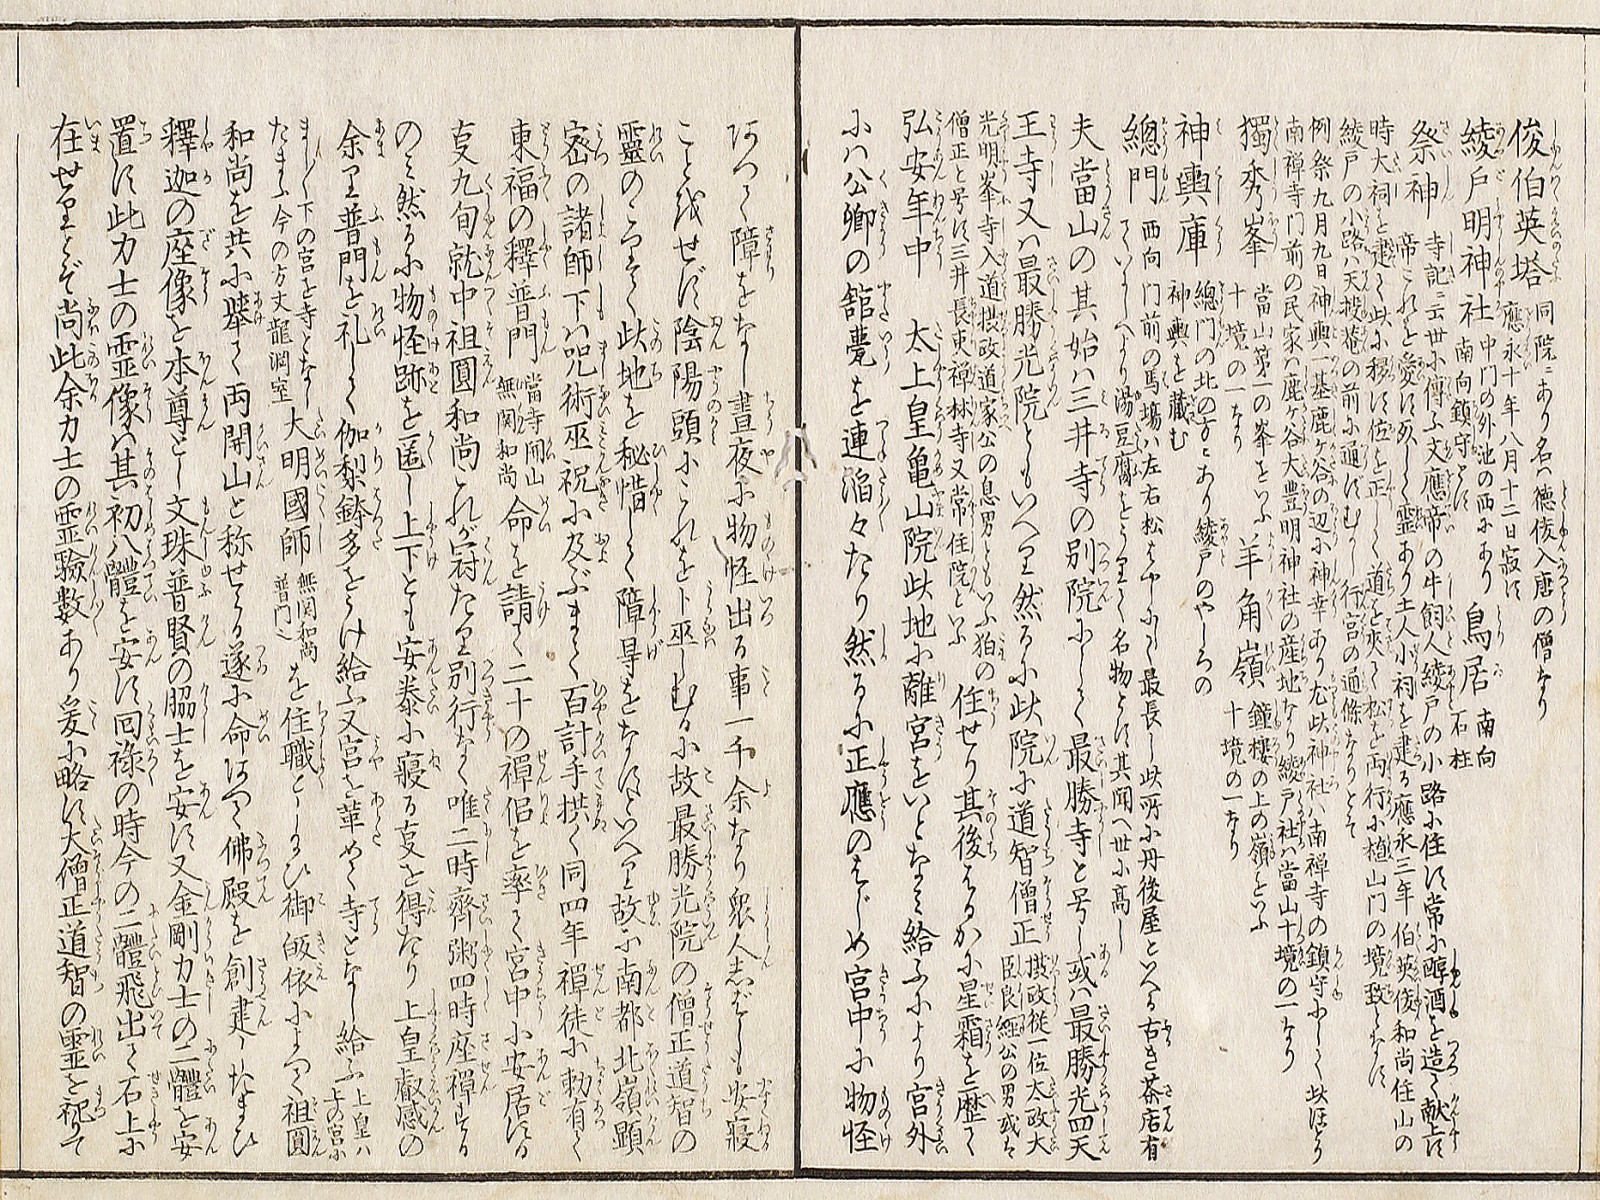 俊伯英塔 同院ニあり名ハ徳俊入唐の僧なり
應永十年八月十二日寂す
綾戸明神社 中門の外池の西にあり
南向鎮守とす 鳥居 南向
石柱
祭神 寺記ニ云世に傳ふ文應帝の牛飼人綾戸の小路に住す常に醇酒を造て献上す
帝これを愛す死して霊あり土人小祠を建る應永三年伯英俊和尚住山の
時大祠を建て此に移す位を正して道を夾て松を両行に植山門の境致とす
綾戸の小路ハ天授菴の前に通ずむかし行宮の通條なりとぞ
例祭九月九日神輿一基鹿ヶ谷の辺に神幸あり尤此神社ハ南禅寺の鎮守にして此ほとり
南禅寺門前の民家ハ鹿ヶ谷大豊明神社の産地なり綾戸社ハ當山十境の一なり
獨秀峯 當山第一の峯をいふ
十境の一なり 羊角嶺 鐘樓の上の嶺をいふ
十境の一なり
神輿庫 總門の北の方にあり綾戸のやしろの
神輿を藏む
總門 西向門前の馬場ハ左右松をやにし最長し此所に丹後屋といへる古き茶店有
ていにしへより湯豆腐をうりて名物とす其聞へ世に高し
夫當山の其始ハ三井寺の別院にして最勝寺と号し或ハ最勝光四天
王寺又ハ最勝光院ともいへり然るに此院に道智僧正 摂政従一位太政大
臣良經公の男或ハ
光明峯寺入道摂政道家公の息男ともいふ狛の
僧正と号す三井長吏禅林寺又常住院といふ 住せり其後はるかに星霜を歴て
弘安年中 太上皇亀山院此地に離宮をいとなみ給ふにより宮外
にハ公卿の舘甍を連滔々たり然るに正應のはじめ宮中に物怪
ありて障をなし晝夜に物怪出る事一千余なり衆人志ばしも安寢
こと𛂁せず陰陽頭にこれを卜巫しむるに故最勝光院の僧正道智の
靈のこりて此地を秘惜して障㝵をなすといへり故に南都北嶺顕
密の諸師下ハ呪術巫祝に及ぶまで百計手拱く同四年禪徒に勅有て
東福の釋普門 當寺開山
無関和尚 命を請て二十の禪侶を率て宮中に安居する
支九旬就中祖圓和尚これが冠たり別行なく唯二時齊粥四時座禪する
のミ然るに物怪跡を匿し上下とも安泰に寢る支を得たり 上皇叡感の
余り普門を礼して伽梨鉢多をうけ給ふ又宮を革めて寺となし給ふ 上皇ハ
上の宮に
まし〳〵下の宮を寺となし
たまふ今の方丈龍渕室 大明國師 無関和尚
普門也 を住職としたまひ御皈依によつて祖圓
和尚を共に擧て両開山と称せらる遂に命ありて佛殿を創建したまひ
釋迦の座像を本尊とし文珠普賢の脇士を安す又金剛力士の二體を安
置す此力士の霊像ハ其初八體を安す回祿の時今の二體飛出て石上に
在せりとぞ尚此余力士の霊驗数あり爰に略す大僧正道智の霊を祀て